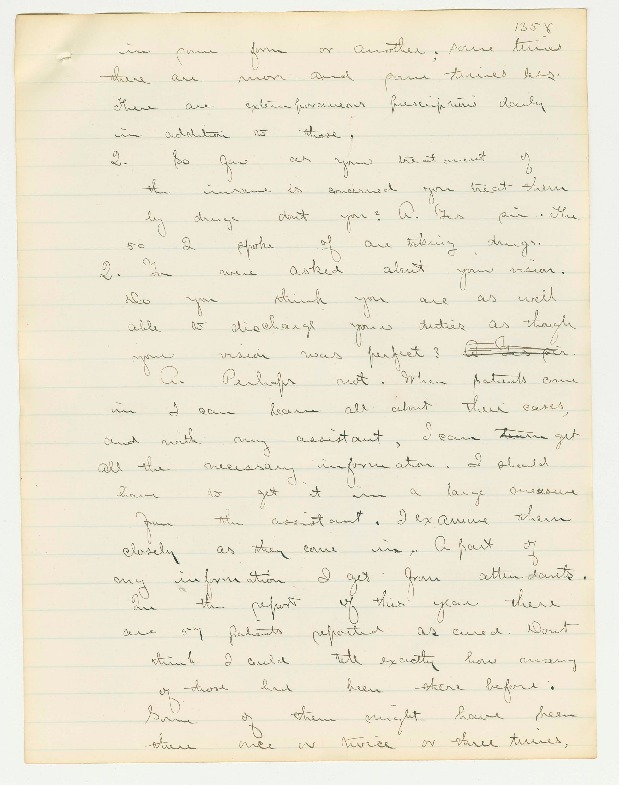 1358
in some form or another; some times
there are more and some times less.
There are extemporaneous prescriptions daily
in addition to those.
Q. So far as your treatment of
the insane is concerned you treat them
by drugs dont you? A. Yes sir. The
50 I spoke of are taking drugs.
Q. You were asked about your vision.
Do you think you are as well
able to discharge your duties as though
your vision was perfect? A Yes sir.
A. Perhaps not. When patients come
in I can learn all about their cases,
and with my assistant, I can learn get
all the necessary information. I should
have to get it in a large measure
from the assistant. I examine them
closely as they come in. A part of
my information I get from attendants.
In the report of this year there
are 57 patients reported as cured. Dont
think I could tell exactly how many
of those had been there before.
Some of them might have been
there once or twice or three times,